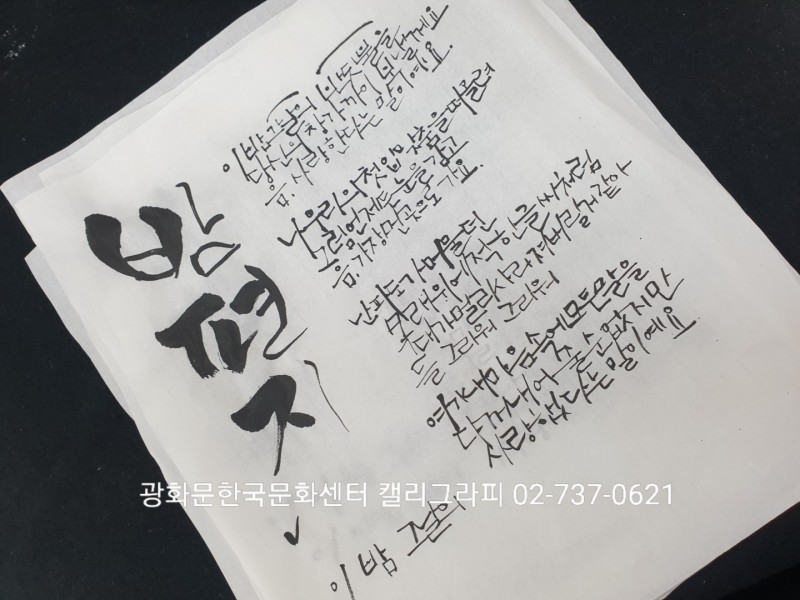 밤
편
지
이 밤 그날의 반딧불을
당신의 창가까이 보낼게요
음, 사랑한다는 말이예요.
나 우리의 첫입맞춤을 떠올려
그럼 언제든 눈을 감고
음, 가장 먼곳으로 가요.
난 파도가 머물던
모래위에 적힌 글씨처럼
그대가 멀리 사라져버릴거 같아
늘 그리워 그리워
여기 내 마음속에 모든말을
다 꺼내어 줄순 없지만
사랑한다는 말이예요
이 밤 그날의
광화문한국문화센터 캘리그라피 02-737-0621